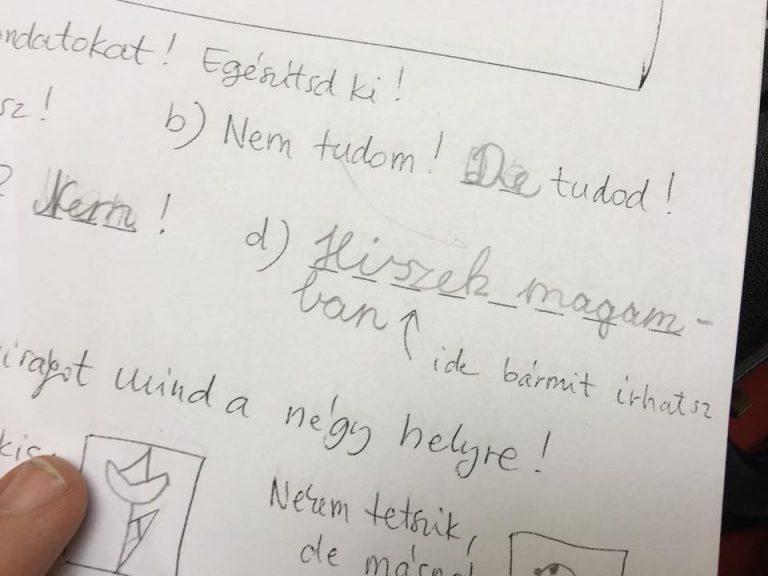 ondatokat! Egészítsd ki!
sz! b) Nem tudom! De tudod!
? Nem! d) Hiszek magam-
ban ↑ ide bármit írhatsz
irágot mind a négy helyre!
kis
Nekem tetszik,
de másnak